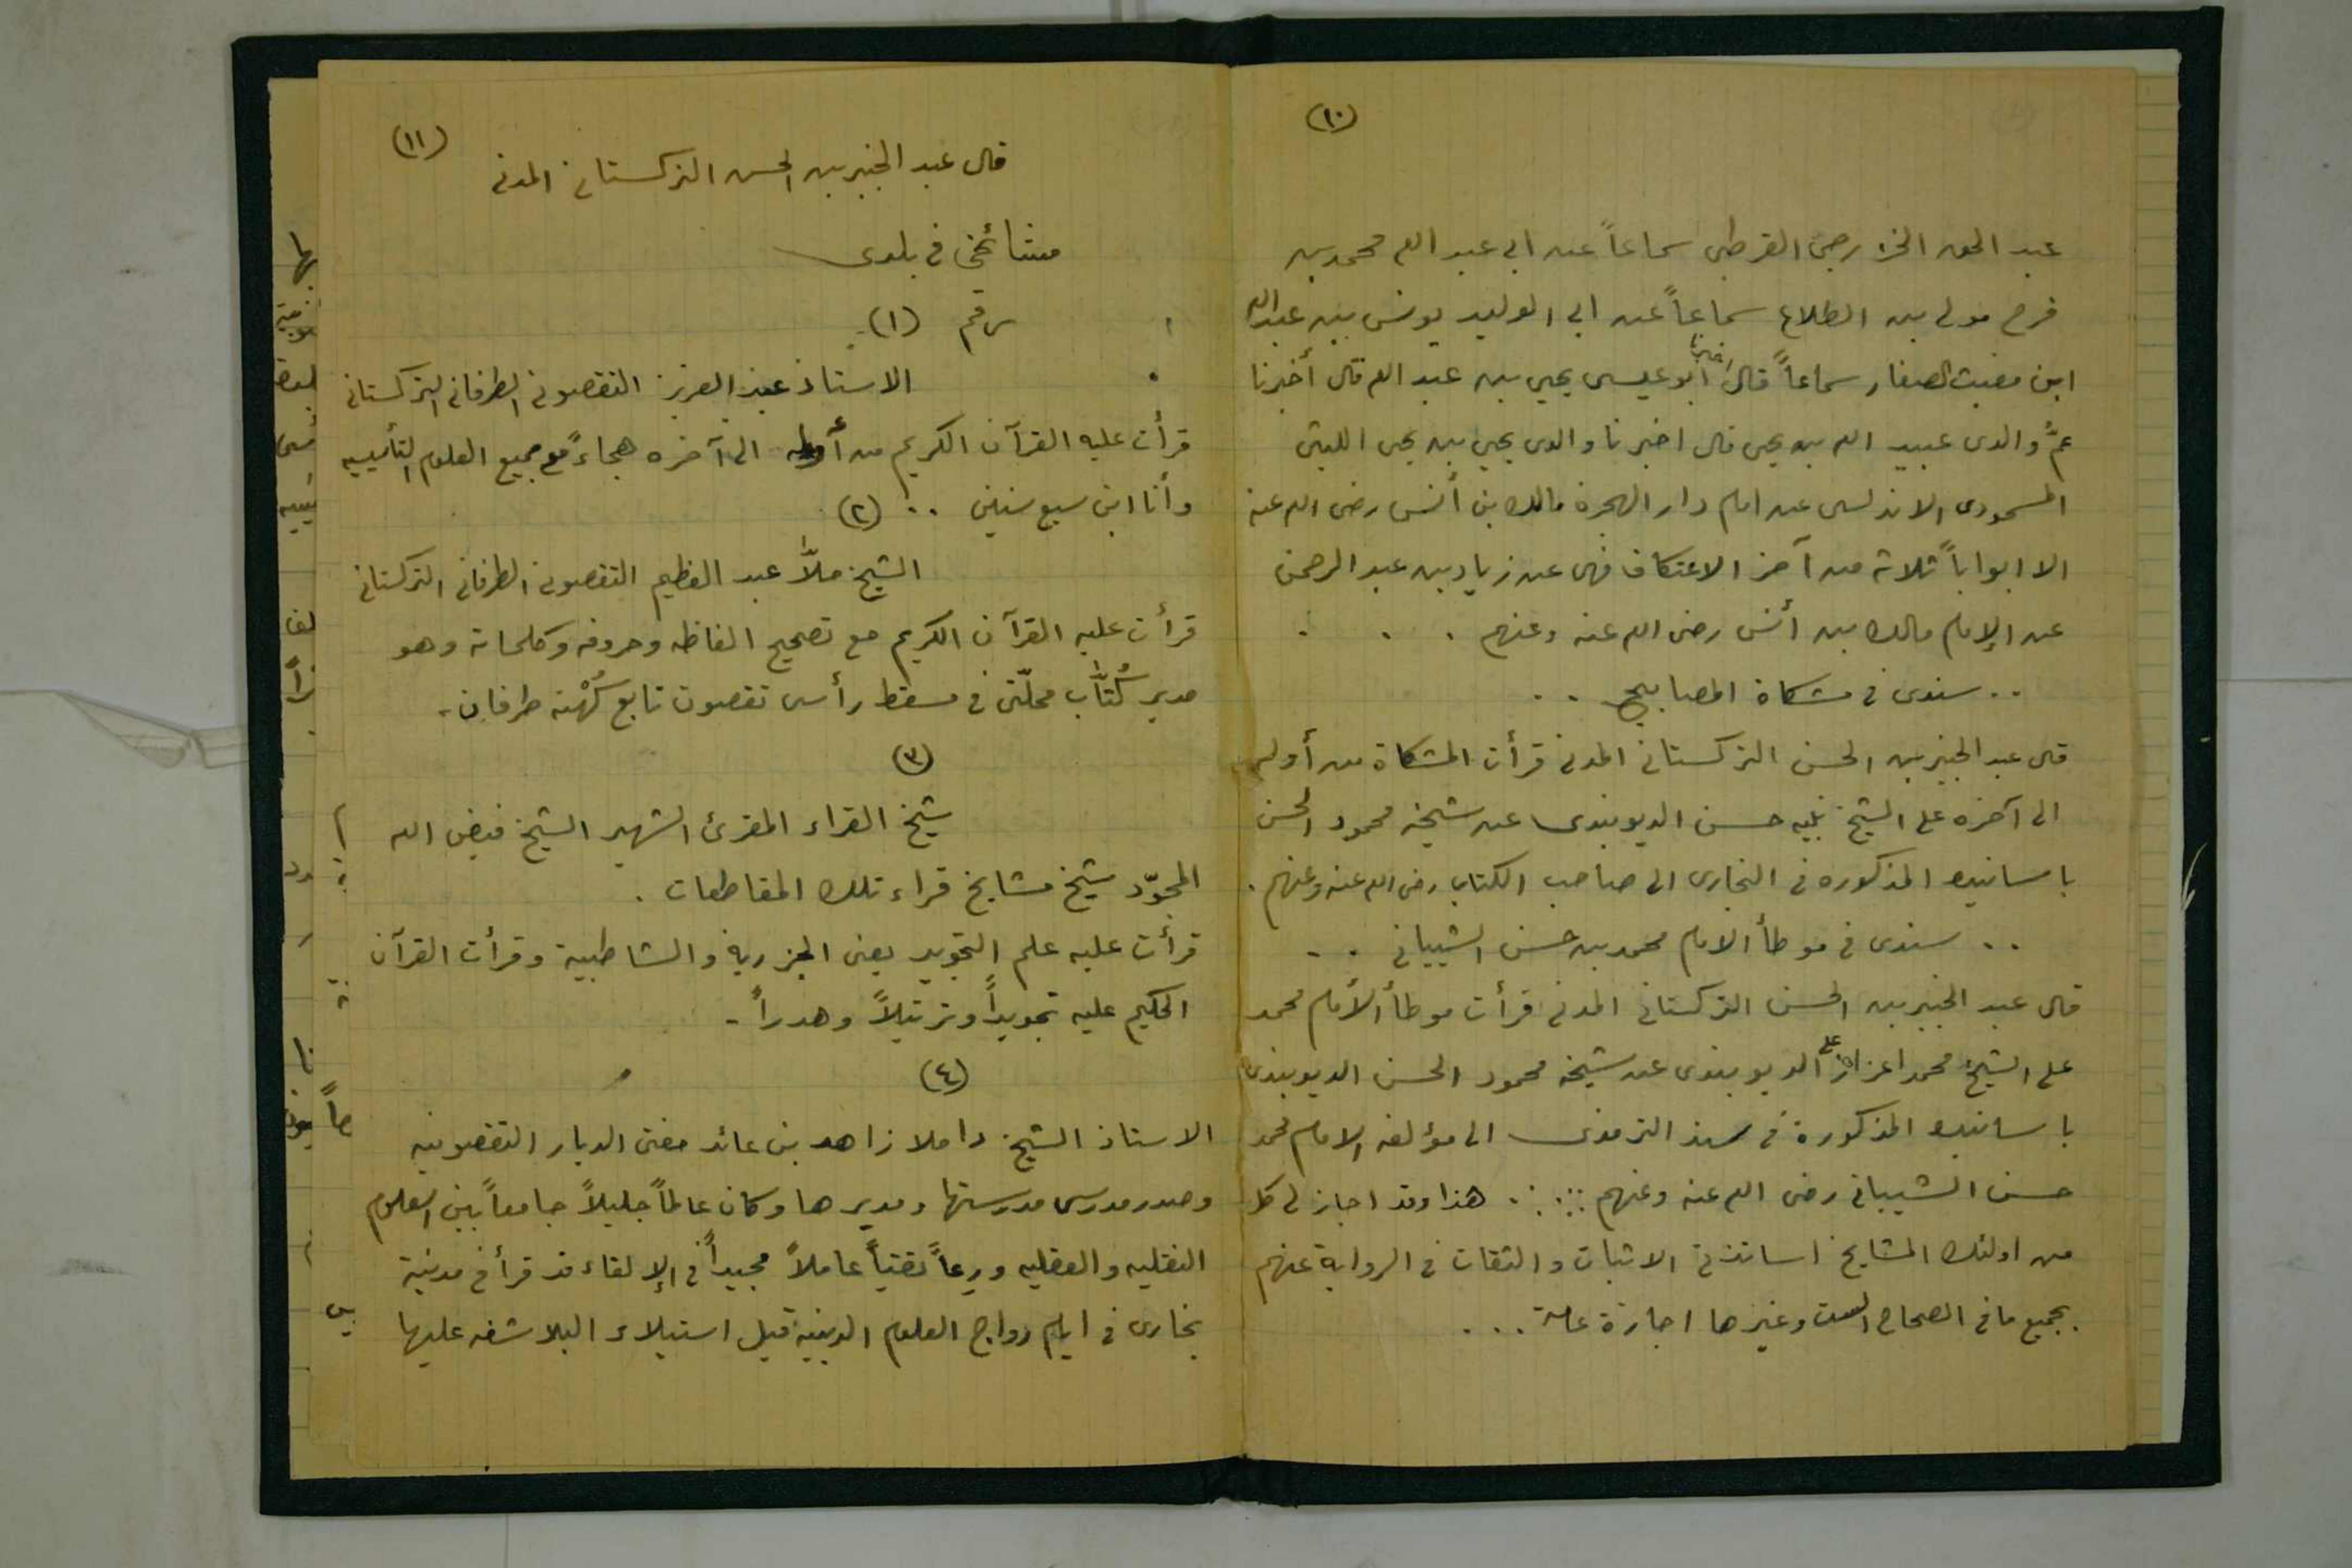 (١٠)
عبد الحق الخزرجى القرطبى سماعاً عن ابى عبد الله محمد بن
فرج مولى بن الطلاع سماعاً عن ابى الوليد يونس بن عبد الله
ابن مغيث الصفار سماعاً قال اخبرنا ابو عيسى يحيى بن عبد الله قال أخبرنا
عمُّ والدى عبيد الله بن يحيى قال اخبرنا والدى يحيى بن يحيى الليثى
المسمودى الاندلسى عن امام دار الهجرة مالك بن أنس رضى الله عنه
الا ابواباً ثلاثة من آخر الاعتكاف فهى عن زياد بن عبد الرحمن
عن الإمام مالك بن أنس رضى الله عنه وعنهم . . .
.. سندى فى مشكاة المصابيح ..
قال عبد الخبير بن الحسن التركستانى المدنى قرأت المشكاة من أوله
الى آخره على الشيخ نبيه حسن الديوبندى عن شيخه محمود الحسن
باسانيده المذكوره فى البخارى الى صاحب الكتاب رضى الله عنه وعنهم .
.. سندى فى موطأ الامام محمد بن حسن الشيبانى ..
قال عبد الخبير بن الحسن التركستانى المدنى قرأت موطأ الأمام محمد
على الشيخ محمد اعزاز على الديوبندى عن شيخه محمود الحسن الديوبندى
باسانيده المذكورة فى سند الترمذى الى مؤلفه الامام محمد
حسن الشيبانى رضى الله عنه وعنهم .:.:. هذا وقد اجاز لى كل
من اولئك المشايخ اساتذتى الاثبات والثقات فى الرواية عنهم
بجميع ما فى الصحاح الست وغيرها اجازة عامة ...
(١١)
قال عبد الخبير بن الحسن التركستانى المدنى
مشائخى فى بلدى
رقم (١) -
الاستاذ عبد العزيز التقصونى الطرفانى التركستانى
قرأت عليه القرآن الكريم من أوله الى آخره هجاءً مع جميع العلوم التأسيسيه
وأنا ابن سبع سنين .. (٢)
الشيخ ملاّ عبد العظيم التقصونى الطرفانى التركستانى
قرأت عليه القرآن الكريم مع تصحيح الفاظه وحروفه وكلماته وهو
مدير كُتّاب محلّتى فى مسقط رأسى تقصون تابع كُهْنه طرفان -
(٣)
شيخ القراء المقرئ الشهير الشيخ فيض الله
المجوّد شيخ مشايخ قراء تلك المقاطعات .
قرأت عليه علم التجويد يعنى الجزرية والشاطبية وقرأت القرآن
الحكيم عليه تجويداً وترتيلاً وهدراً -
(٤)
الاستاذ الشيخ داملا زاهد بن عائد مفتى الديار التقصونيه
وصدر مدرسى مدرستها ومديرها وكان عالماً جليلاً جامعاً بين العلوم
النقليه والعقليه ورعاً تقياً عاملاً مجيداً فى الإلقاء قد قرأ فى مدينة
بخارى فى ايام رواج العلوم الدينية قبل استيلاء البلاشفه عليها